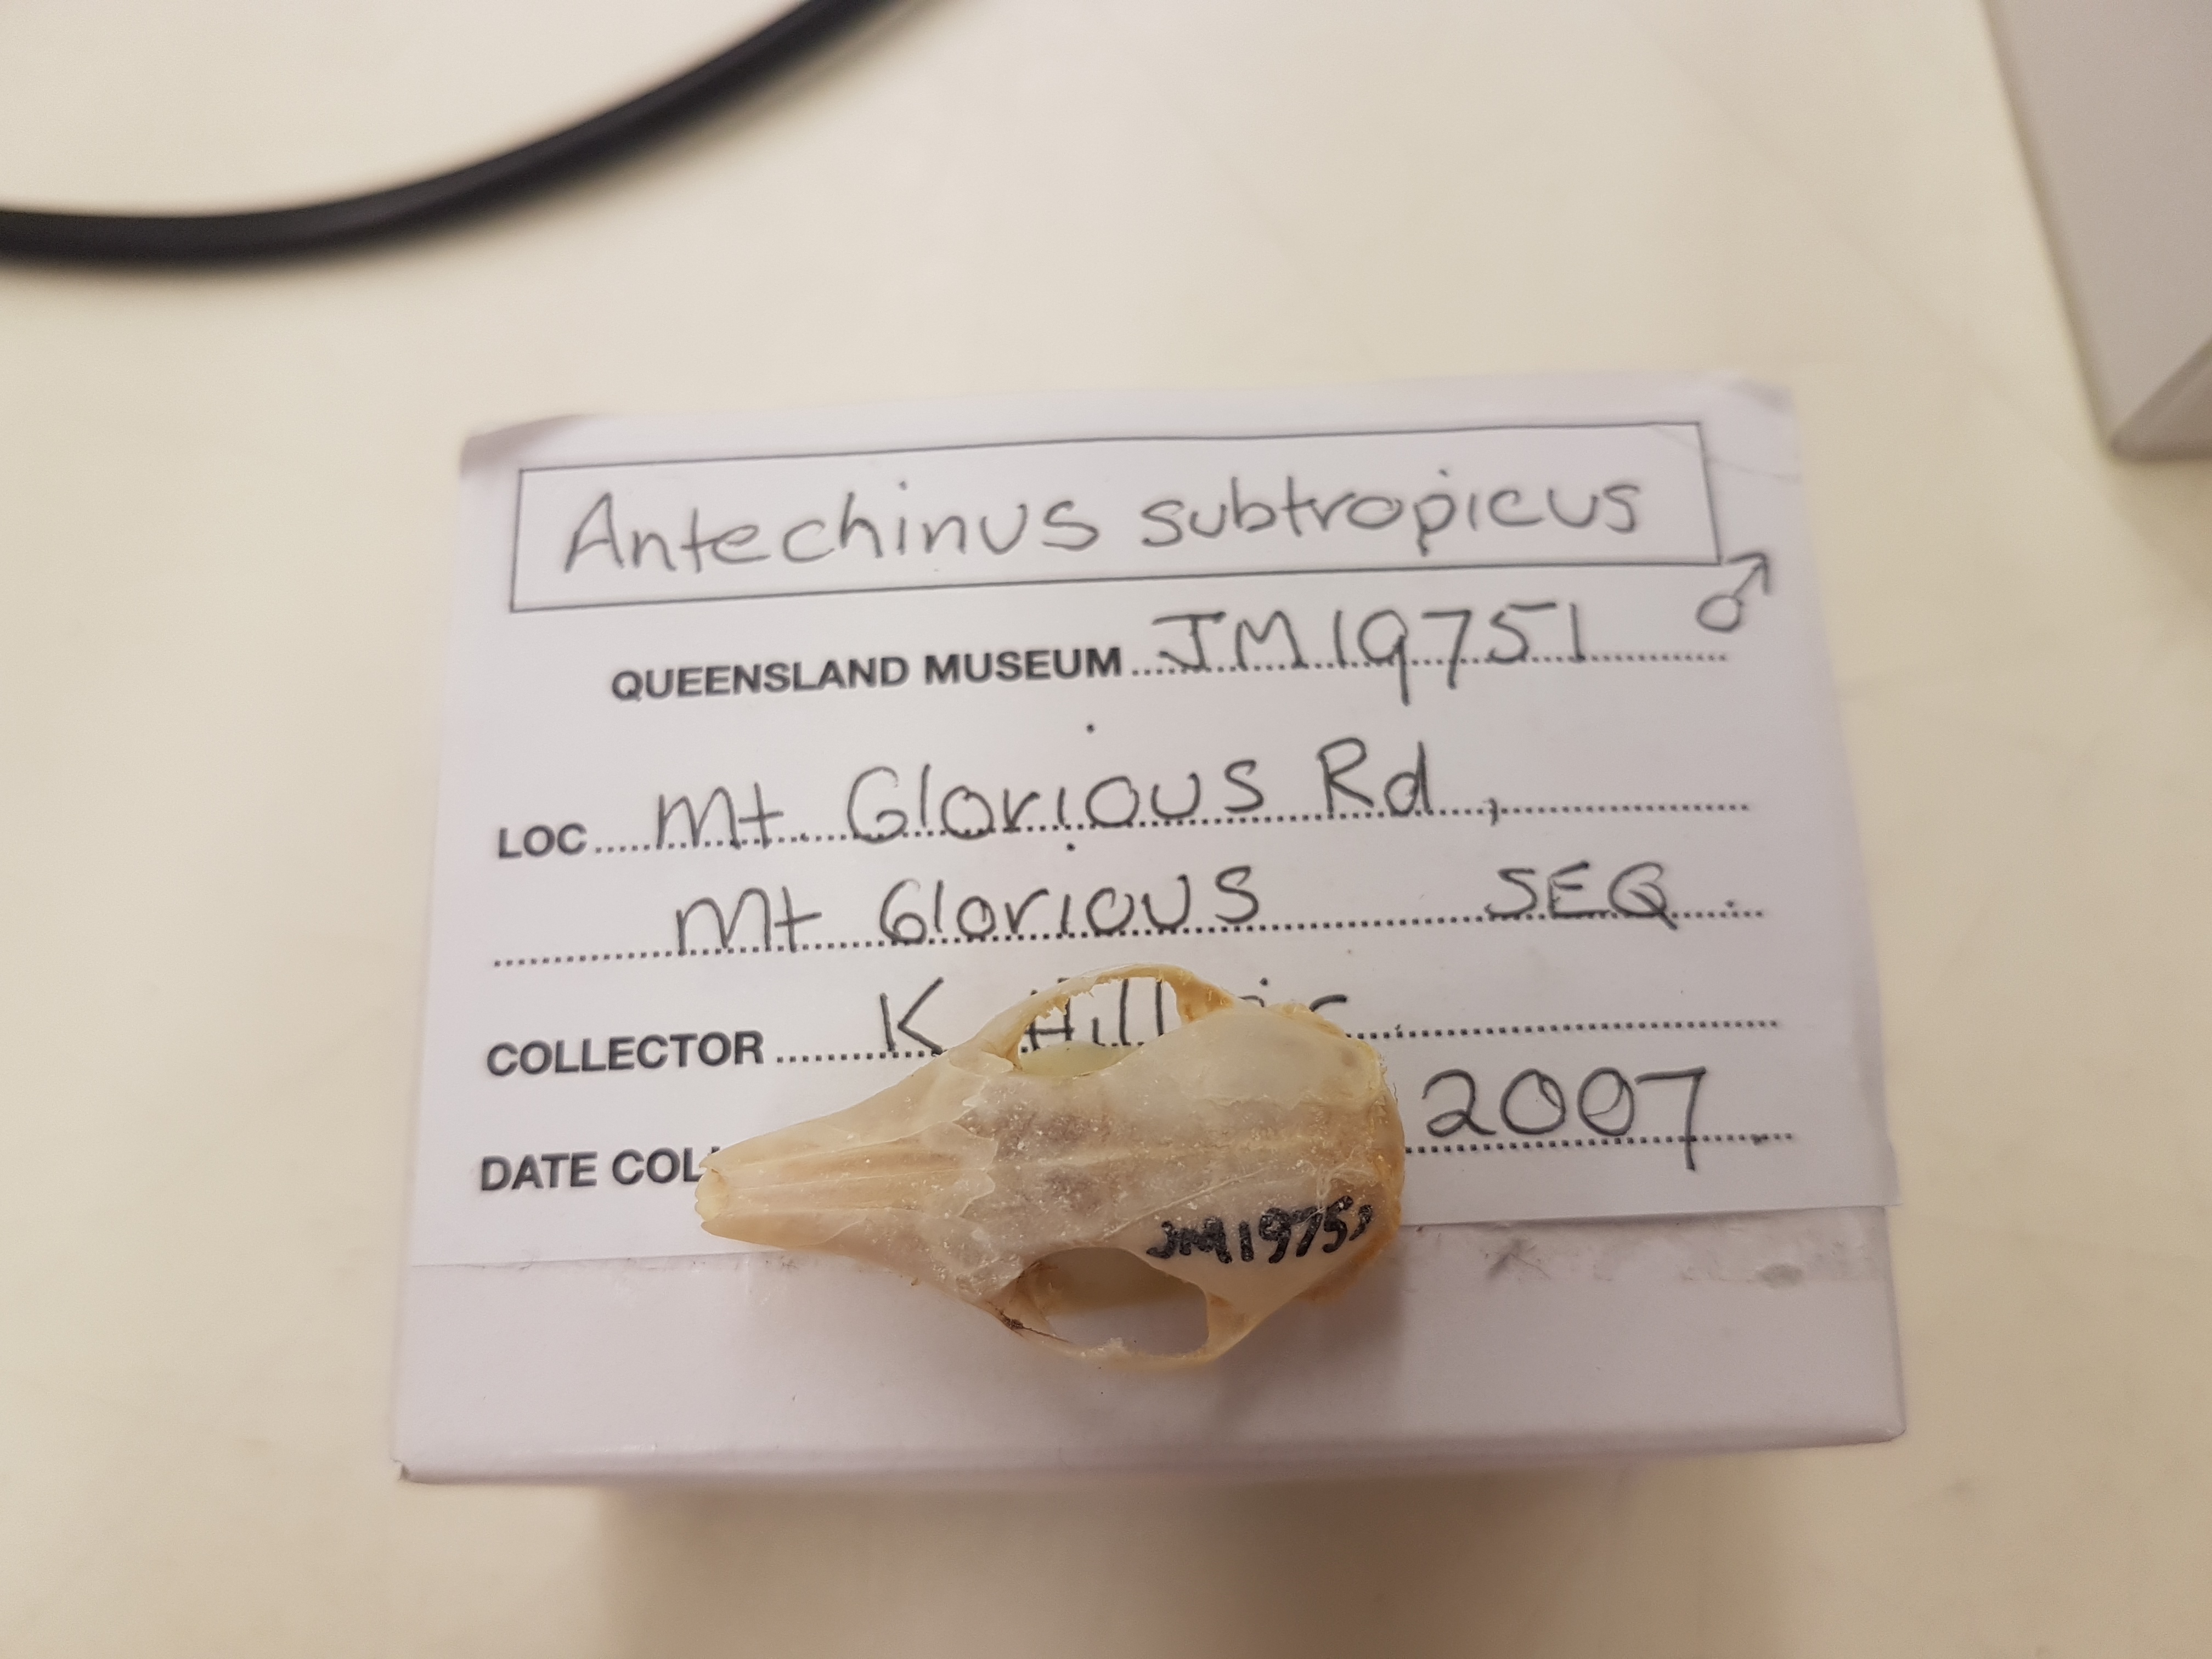 Antechinus subtropicus
QUEENSLAND MUSEUM JM19751 ♂
LOC Mt Glorious Rd,
Mt Glorious SEQ
COLLECTOR K
DATE 2007
JM19751